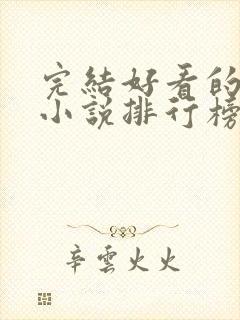 完結好看的
小説排行榜
辛雲火火